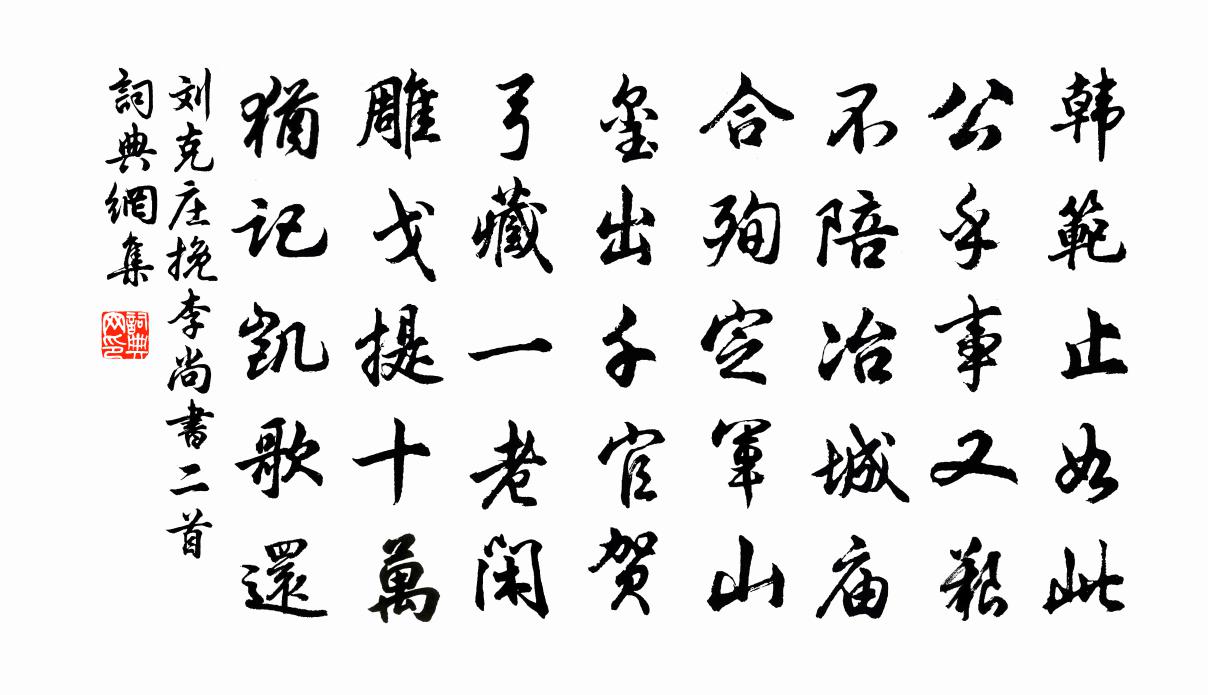 韩範止如此
公乎事又艱
不陪冶城庙
合殉定軍山
璺出千官贺
弓藏一老閑
雕戈提十萬
猶記凱歌還
刘克庄挽李尚書二首
詞典網集
詞典網印